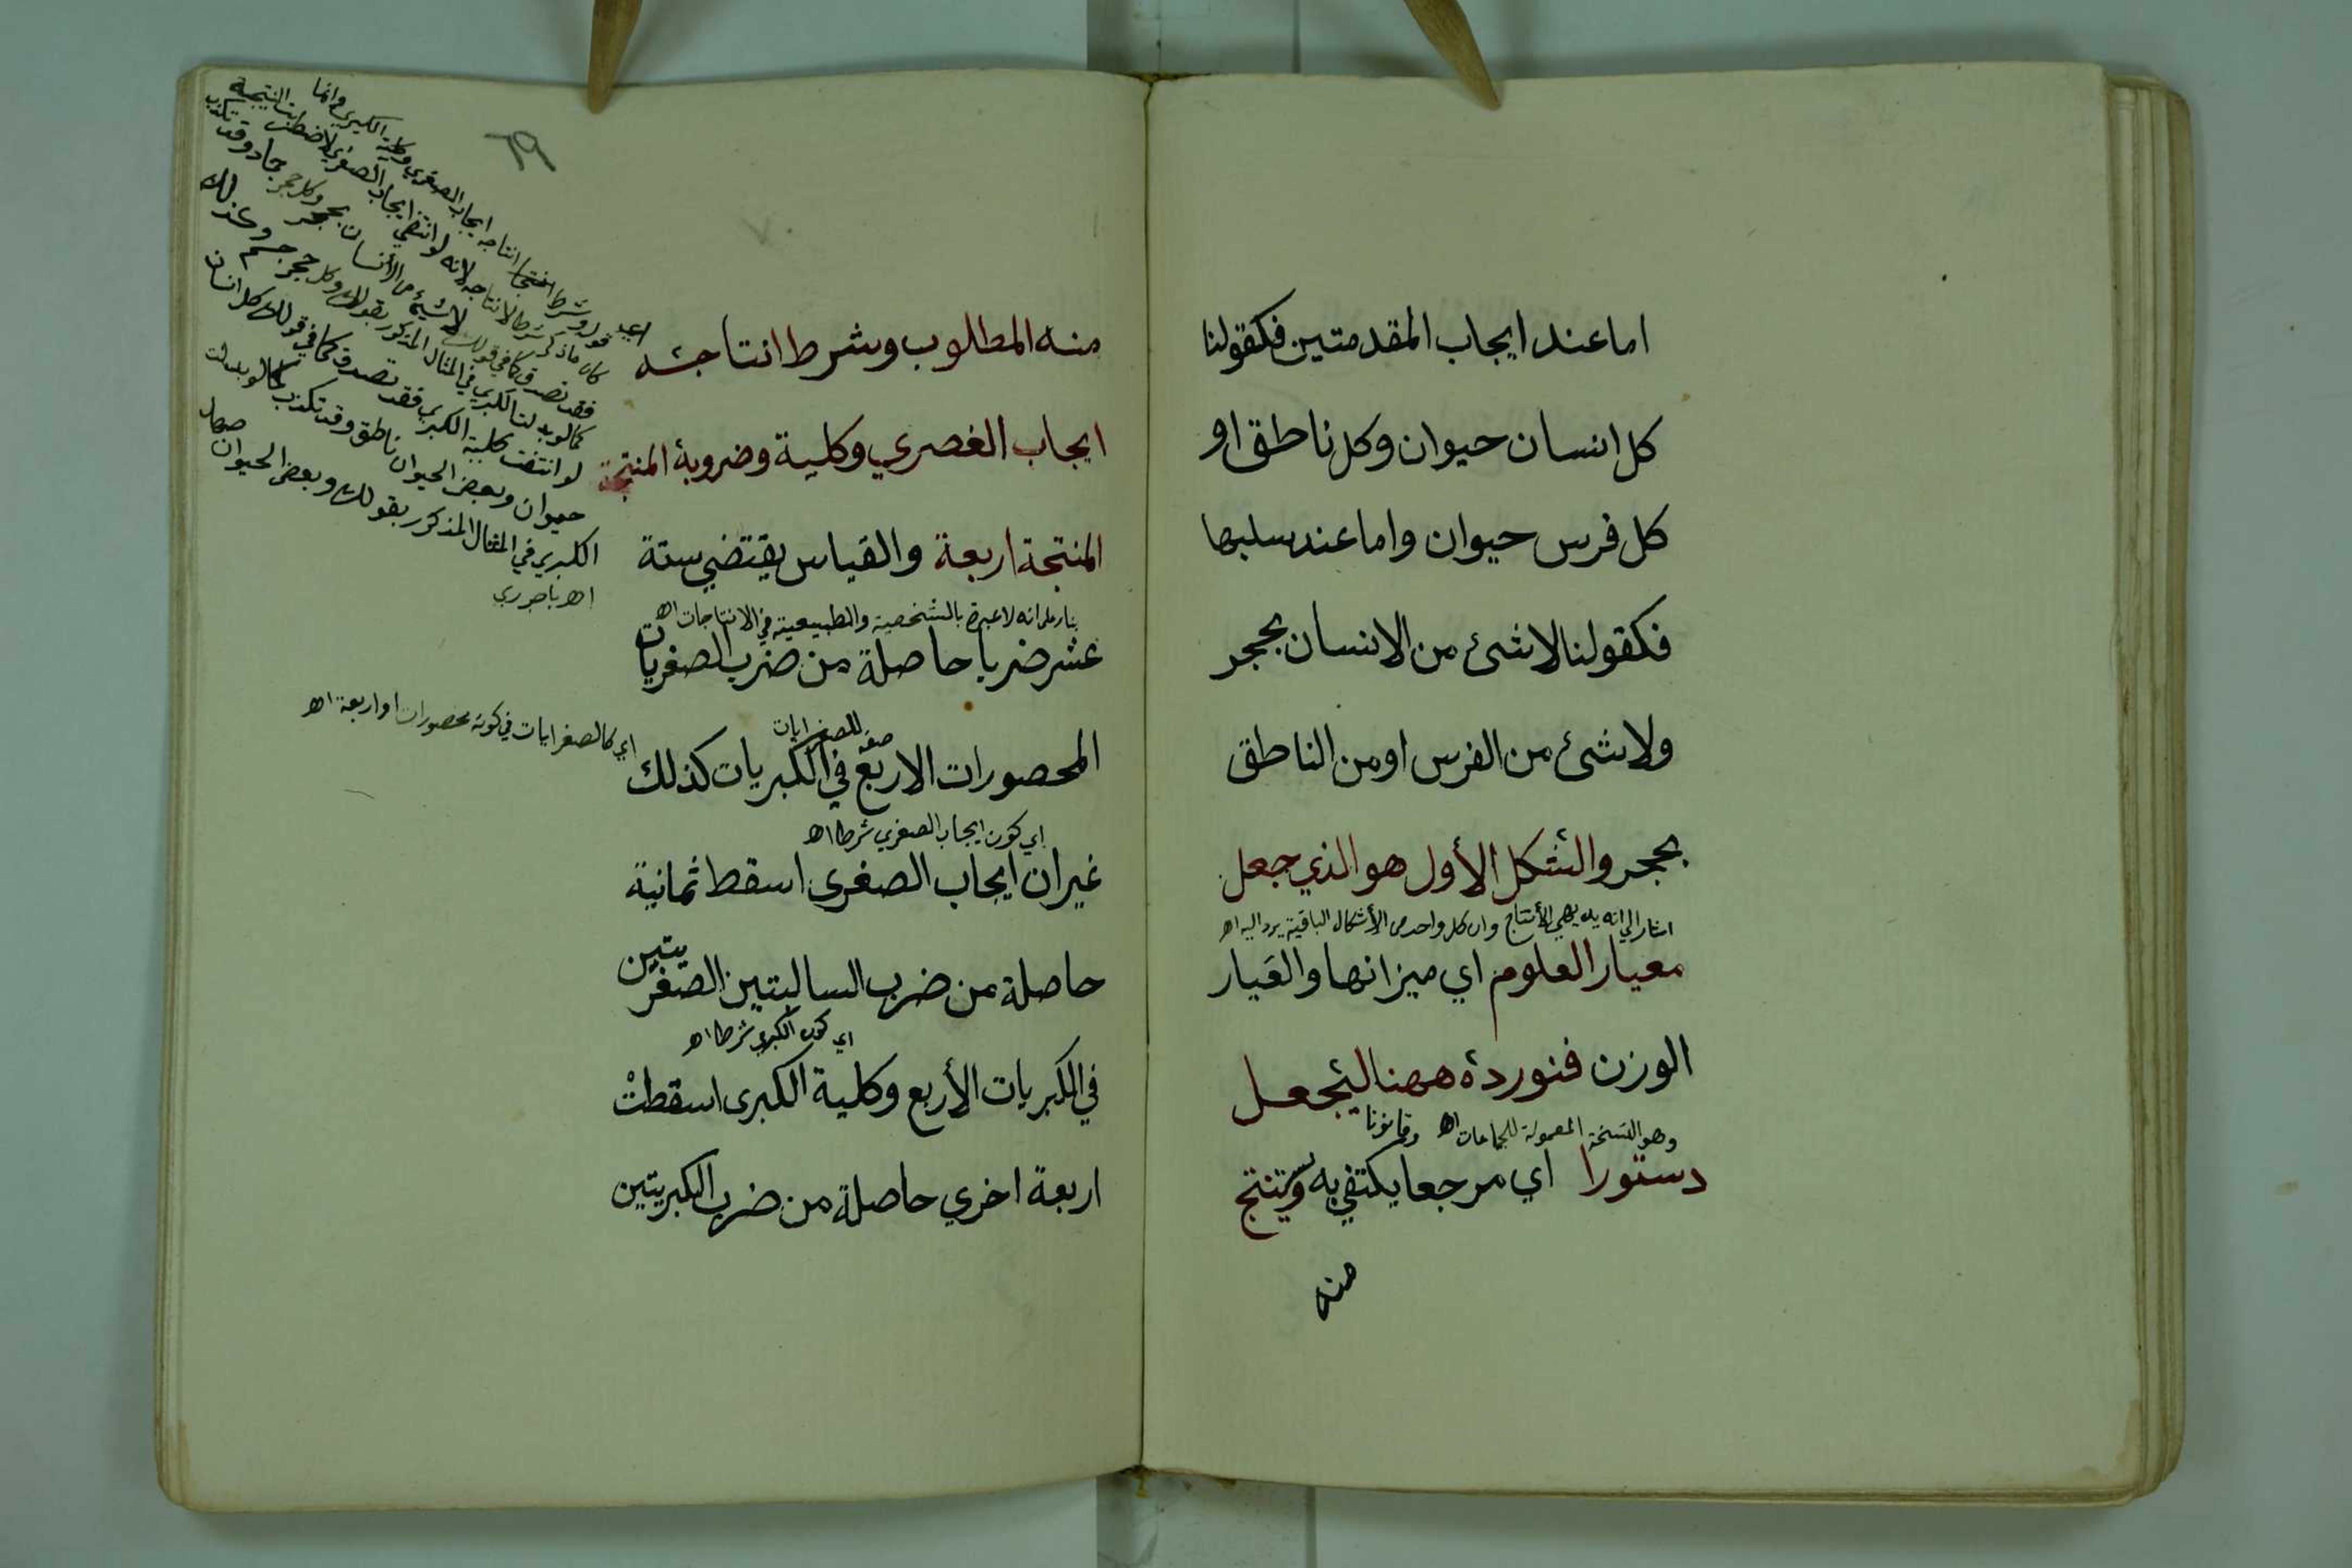 اما عند ايجاب المقدمتين فكقولنا
كل انسان حيوان وكل ناطق او
كل فرس حيوان واما عند سلبها
فكقولنا لا شئ من الانسان بحجر
ولا شئ من الفرس او من الناطق
بحجر والشكل الأول هو الذي جعل
اشار الي انه بديهي الأنتاج وان كل واحد من الأشكال الباقية يرد اليه اه
معيار العلوم اي ميزانها والعيار
الوزن فنورده ههنا ليجعل
وهو النسخة المعمولة للجماعات اه وقانونا
دستورا اي مرجعا يكتفي به ويستنتج
منه
٦٩
منه المطلوب وشرط انتاجه
ايجاب الغصري وكلية وضروبه المنتجة
المنتجة اربعة والقياس يقتضي ستة
بناء على انه لا عبرة بالشخصية والطبيعية في الانتاجات اه
عشر ضربا حاصلة من ضرب الصغريات
صفة للصغرايات
المحصورات الاربع في الكبريات كذلك
اي كالصغرايات في كونه محصورات اربعة اه
اي كون ايجاب الصغري شرطا اه
غير ان ايجاب الصغرى اسقط ثمانية
حاصلة من ضرب السالبتين الصغريتين
اي كون الكبري شرطا اه
في الكبريات الأربع وكلية الكبرى اسقطت
اربعة اخري حاصلة من ضرب الكبريتين
قوله وشرط انتاجه ايجاب الصغري وكلية الكبري وانما
كان ما ذكر شرطا لانتاجه لانه لو انتفي ايجاب الصغري لاضطربت النتيجة
فقد تصدق كما في قولك لا شيء من الأنسان بحجر وكل حجر جماد وقد تكذب
كما لو بدلت الكبري في المثال المذكور بقولك وكل حجر جسم وكذلك
لو انتفت كلية الكبري فقد تصدق كما في قولك كل انسان
حيوان وبعض الحيوان ناطق وقد تكذب كما لو بدلت
الكبري في المثال المذكور بقولك وبعض الحيوان صهال
اه باجوري